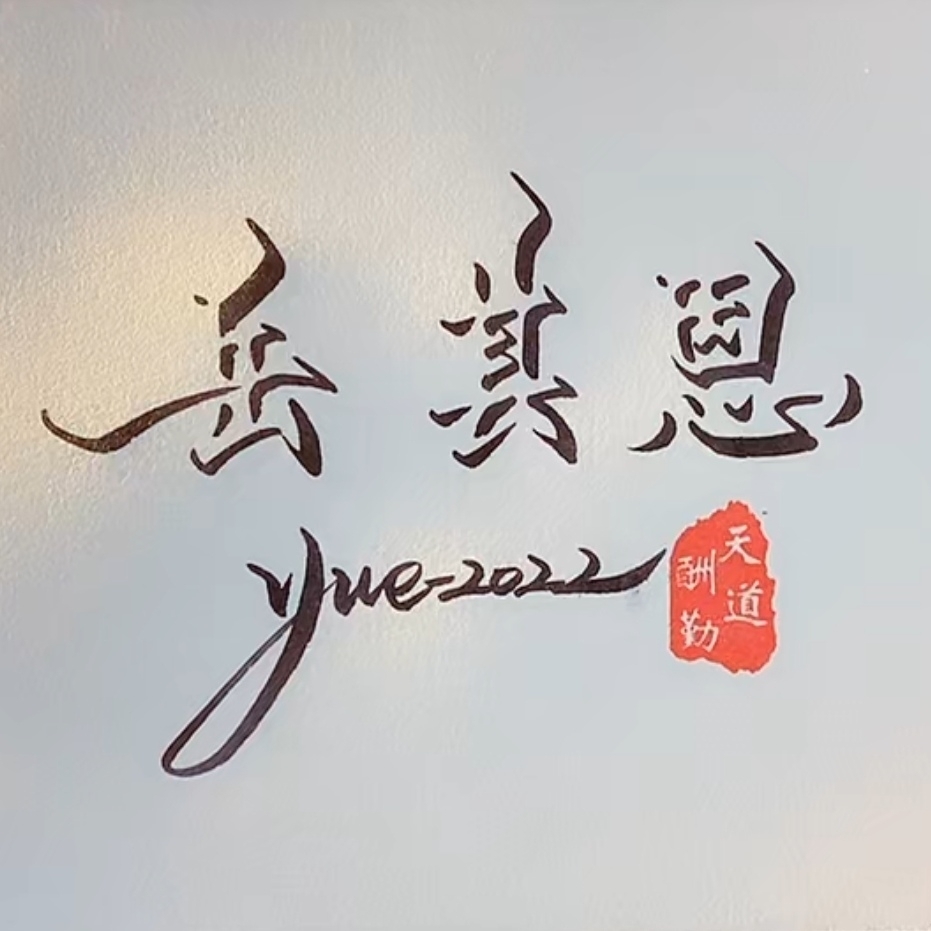 岳其恩
yue-2022
天道
酬勤